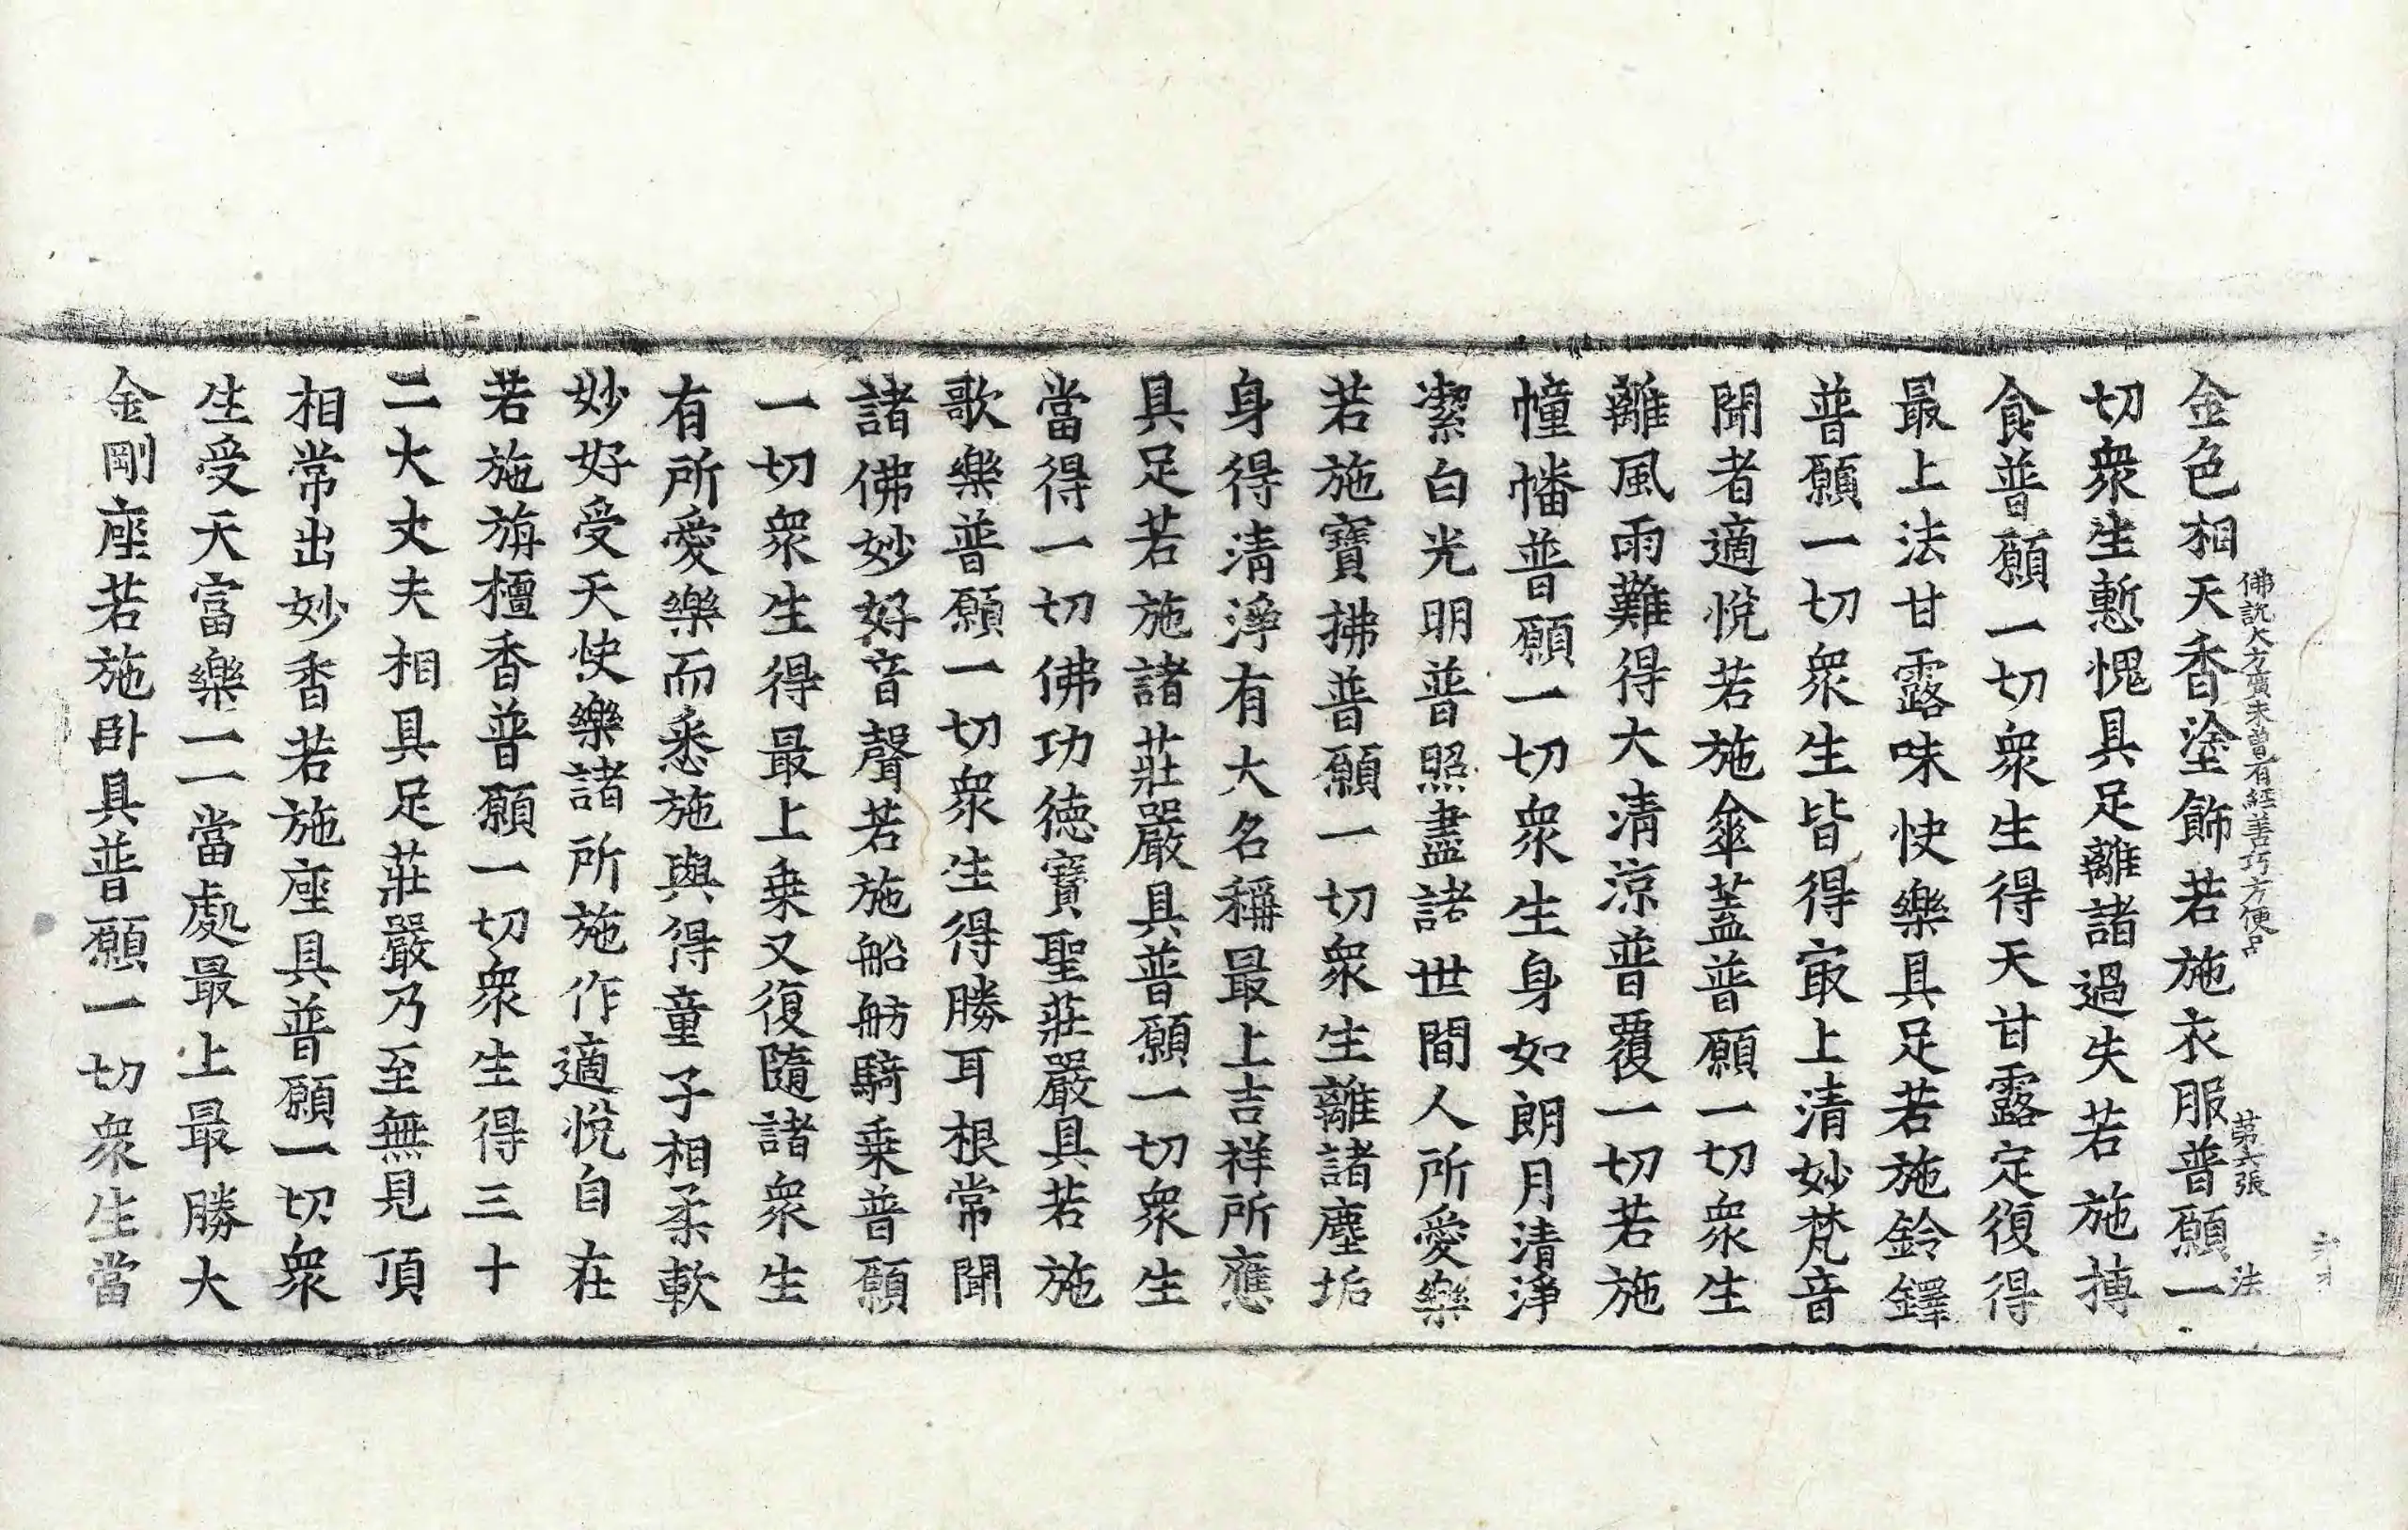 佛說大方廣未曾有經善巧方便品 第六張 法
金色相天香塗飾若施衣服普願一
切衆生慙愧具足離諸過失若施摶
食普願一切衆生得天甘露定復得
最上法甘露味快樂具足若施鈴鐸
普願一切衆生皆得㝡上清妙梵音
聞者適悅若施傘蓋普願一切衆生
離風雨難得大清涼普覆一切若施
幢幡普願一切衆生身如朗月清淨
潔白光明普照盡諸世間人所愛樂
若施寶拂普願一切衆生離諸塵垢
身得清淨有大名稱最上吉祥所應
具足若施諸莊嚴具普願一切衆生
當得一切佛功德寶聖莊嚴具若施
歌樂普願一切衆生得勝耳根常聞
諸佛妙好音聲若施船舫騎乗普願
一切衆生得最上乗又復隨諸衆生
有所愛樂而悉施與得童子相柔軟
妙好受天快樂諸所施作適悅自在
若施旃檀香普願一切衆生得三十
二大丈夫相具足莊嚴乃至無見頂
相常出妙香若施座具普願一切衆
生受天富樂一一當處最上最勝大
金剛座若施臥具普願一切衆生當